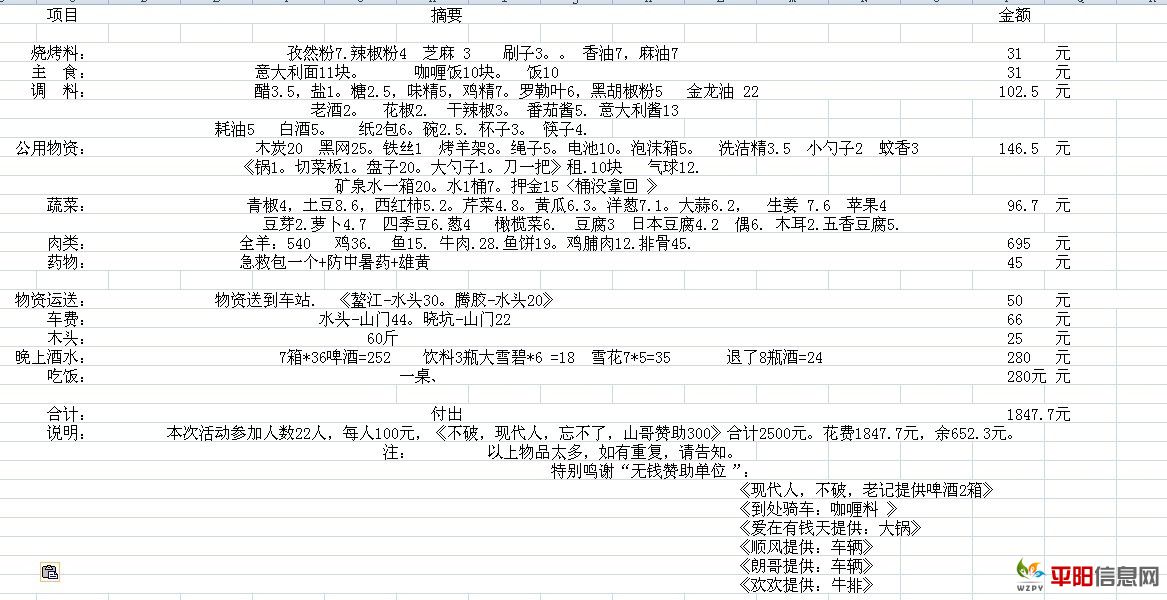 项目 摘要 金额
烧烤料： 孜然粉7.辣椒粉4 芝麻 3 刷子3。。 香油7，麻油7 31 元
主 食： 意大利面11块。 咖喱饭10块。 饭10 31 元
调 料： 醋3.5，盐1。糖2.5，味精5，鸡精7。罗勒叶6，黑胡椒粉5 金龙油 22 102.5 元
老酒2。 花椒2. 干辣椒3。 番茄酱5. 意大利酱13
耗油5 白酒5。 纸2包6。碗2.5. 杯子3。 筷子4.
公用物资： 木炭20 黑网25。铁丝1 烤羊架8。绳子5。电池10。泡沫箱5。 洗洁精3.5 小勺子2 蚊香3 146.5 元
《锅1。切菜板1。盘子20。大勺子1。刀一把》租.10块 气球12.
矿泉水一箱20。水1桶7。押金15〈桶没拿回 》
蔬菜： 青椒4，土豆8.6，西红柿5.2。芹菜4.8。黄瓜6.3。洋葱7.1。大蒜6.2， 生姜 7.6 苹果4 96.7 元
豆芽2.萝卜4.7 四季豆6.葱4 橄榄菜6. 豆腐3 日本豆腐4.2 偶6. 木耳2.五香豆腐5.
肉类： 全羊：540 鸡36. 鱼15. 牛肉.28.鱼饼19。鸡脯肉12.排骨45. 695 元
药物： 急救包一个+防中暑药+雄黄 45 元
物资运送： 物资送到车站. 《鳌江-水头30。腾胶-水头20》 50 元
车费： 水头-山门44。晓坑-山门22 66 元
木头： 60斤 25 元
晚上酒水： 7箱*36啤酒=252 饮料3瓶大雪碧*6 =18 雪花7*5=35 退了8瓶酒=24 280 元
吃饭： 一桌、 280元 元
合计： 付出 1847.7元
说明： 本次活动参加人数22人，每人100元，《不破，现代人，忘不了，山哥赞助300》合计2500元。花费1847.7元，余652.3元。
注： 以上物品太多，如有重复，请告知。
特别鸣谢“无钱赞助单位 ”：
《现代人，不破，老记提供啤酒2箱》
《到处骑车：咖喱料 》
《爱在有钱天提供：大锅》
《顺风提供：车辆》
《朗哥提供：车辆》
《欢欢提供：牛排》
WZPY 平阳信息网